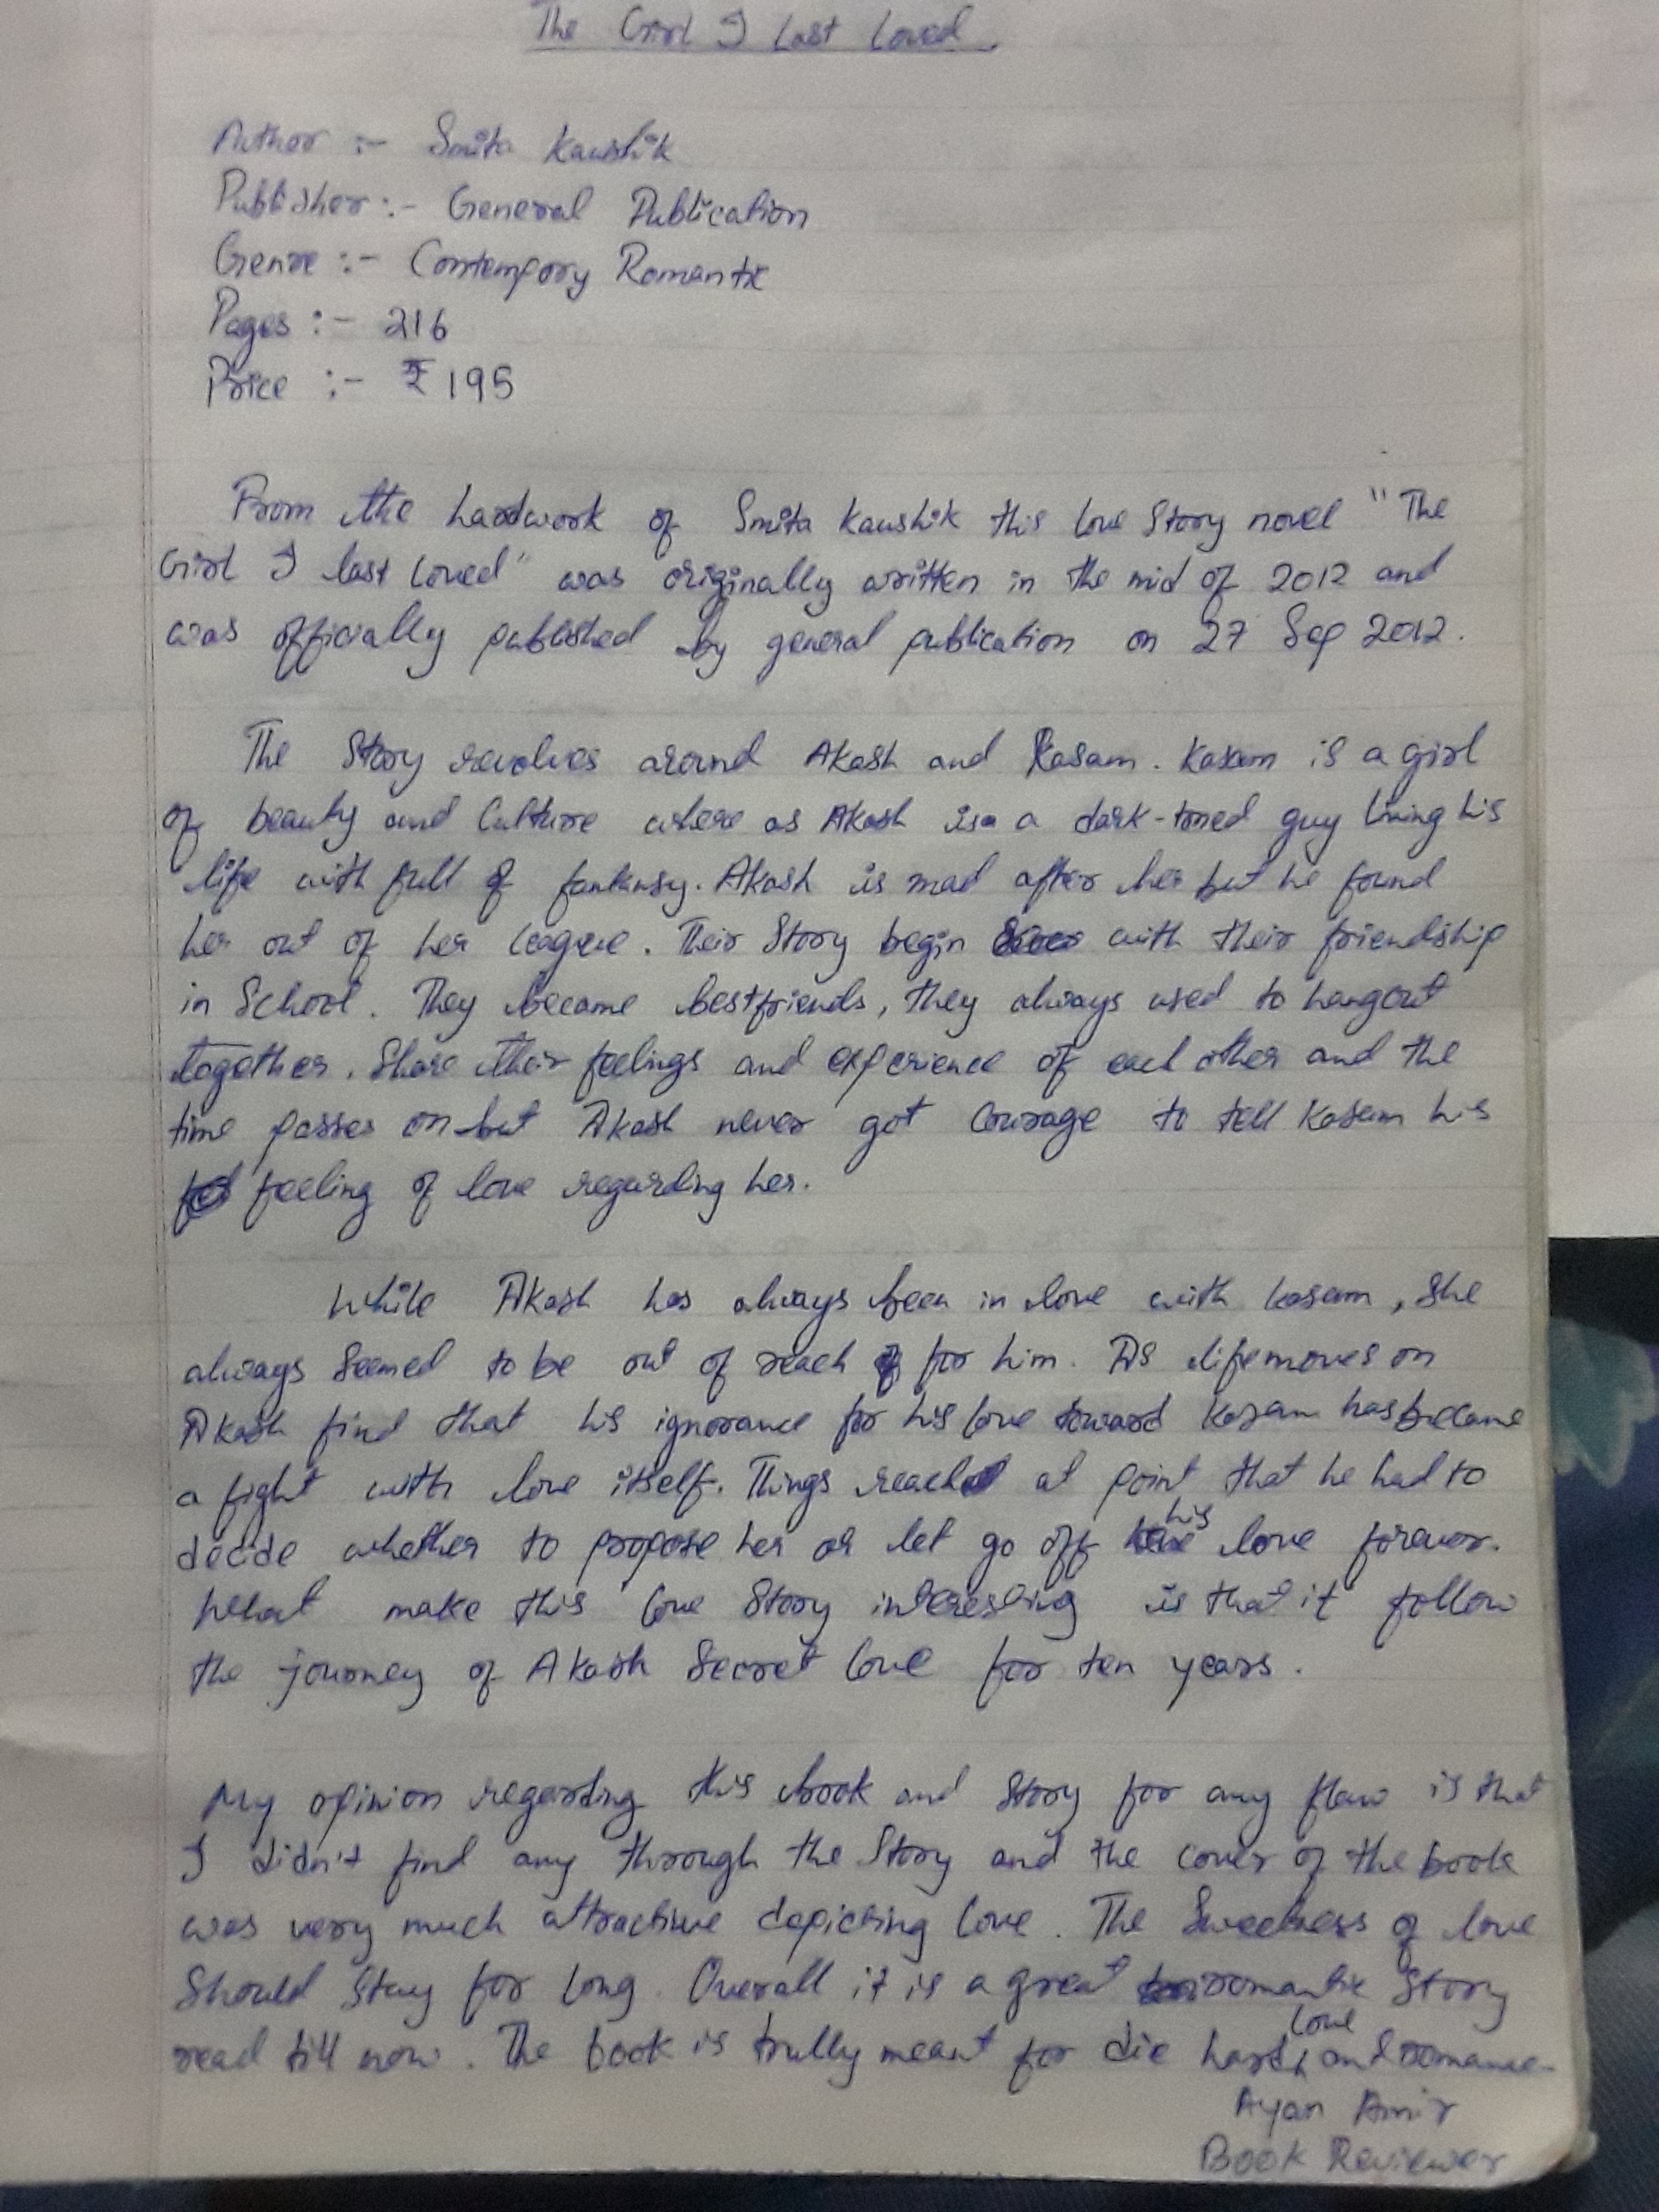 The Girl I Last Loved.
Author :- Smita Kaushik
Publisher :- General Publication
Genre :- Contempory Romantic
Pages :- 216
Price :- ₹195
From the hardwork of Smita Kaushik this love Story novel "The
Girl I last Loved" was originally written in the mid of 2012 and
was officially published by general publication on 27 Sep 2012.
The Story revolves around Akash and Kasam. Kasam is a girl
of beauty and Culture where as Akash is a dark-toned guy living his
life with full of fantansy. Akash is mad after her but he found
her out of her league. Their Story begin with their friendship
in School. They became bestfriends, they always used to hangout
together. Share their feelings and experience of each other and the
time passes on but Akash never got Courage to tell Kasam his
feeling of love regarding her.
While Akash has always been in love with Kasam, She
always Seemed to be out of reach for him. As life moves on
Akash find that his ignorance for his love toward Kasam has became
a fight with love itself. Things reach at point that he had to
decide whether to propose her or let go off his love forever.
What make this love Story interesting is that it follow
the journey of Akash Secret love for ten years.
My opinion regarding this book and Story for any flaw is that
I didn't find any through the Story and the cover of the book
was very much attractive depicting love. The Sweetness of love
Should Stay for long. Overall it is a great romantic Story
read till now. The book is trully meant for die hard love and romance.
Ayan Amir
Book Reviewer